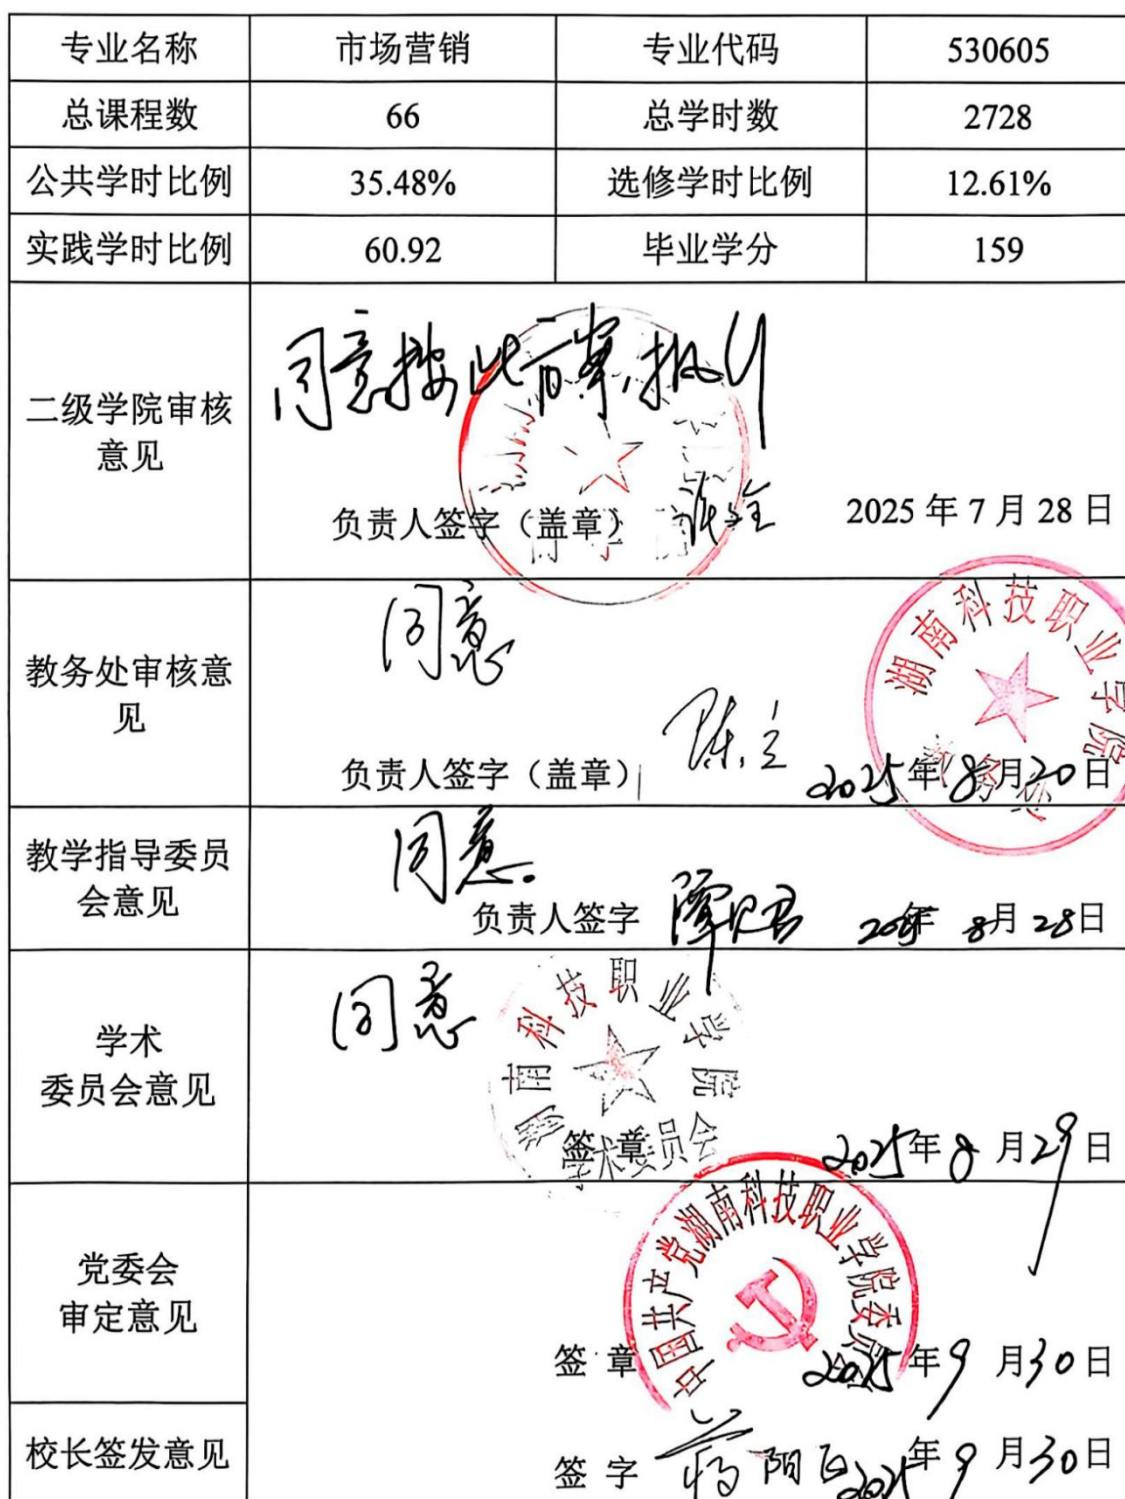 专业名称 市场营销 专业代码 530605
总课程数 66 总学时数 2728
公共学时比例 35.48% 选修学时比例 12.61%
实践学时比例 60.92 毕业学分 159
二级学院审核
意见
同意按此方案执行
负责人签字（盖章） 2025年7月28日
教务处审核意
见
同意
湖南科技职业学院
教务处
负责人签字（盖章） 2025年8月20日
教学指导委员
会意见
同意.
负责人签字 2025年8月28日
学术
委员会意见
同意
湖南科技职业学院
学术委员会
签 章 2025年8月29日
党委会
审定意见
中国共产党湖南科技职业学院委员会
签 章 2025年9月30日
校长签发意见
签 字 2025年9月30日